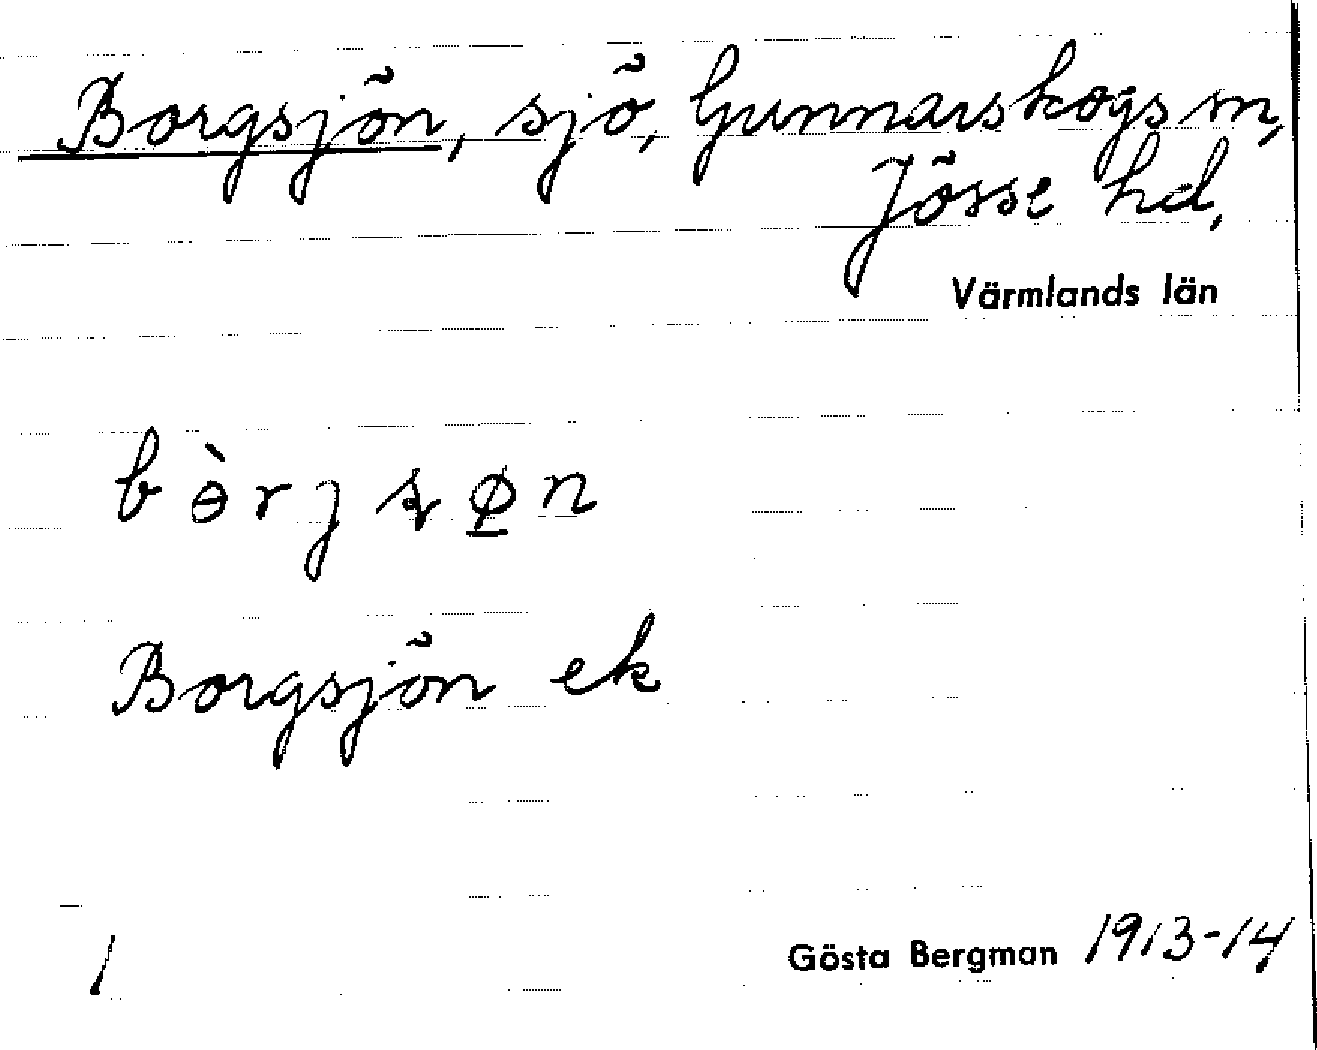 Borgsjön, sjö, Gunnarskogs sn,
Jösse hd,
Värmlands län
b ɵ̀ r j ʂ ø̱ n
Borgsjön ek
1
Gösta Bergman 1913-14